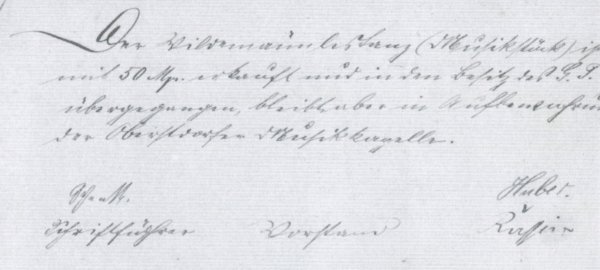 Der Wildemännlestanz (Musikstück) is
mit 50 M. erkauft und in den Besitz des G. T.
übergegangen, bleibt aber in Aufbewahrun
der Oberstdorfer Musikkapelle.
Schrattl. Huber.
Schriftführer Vorstand Kassier